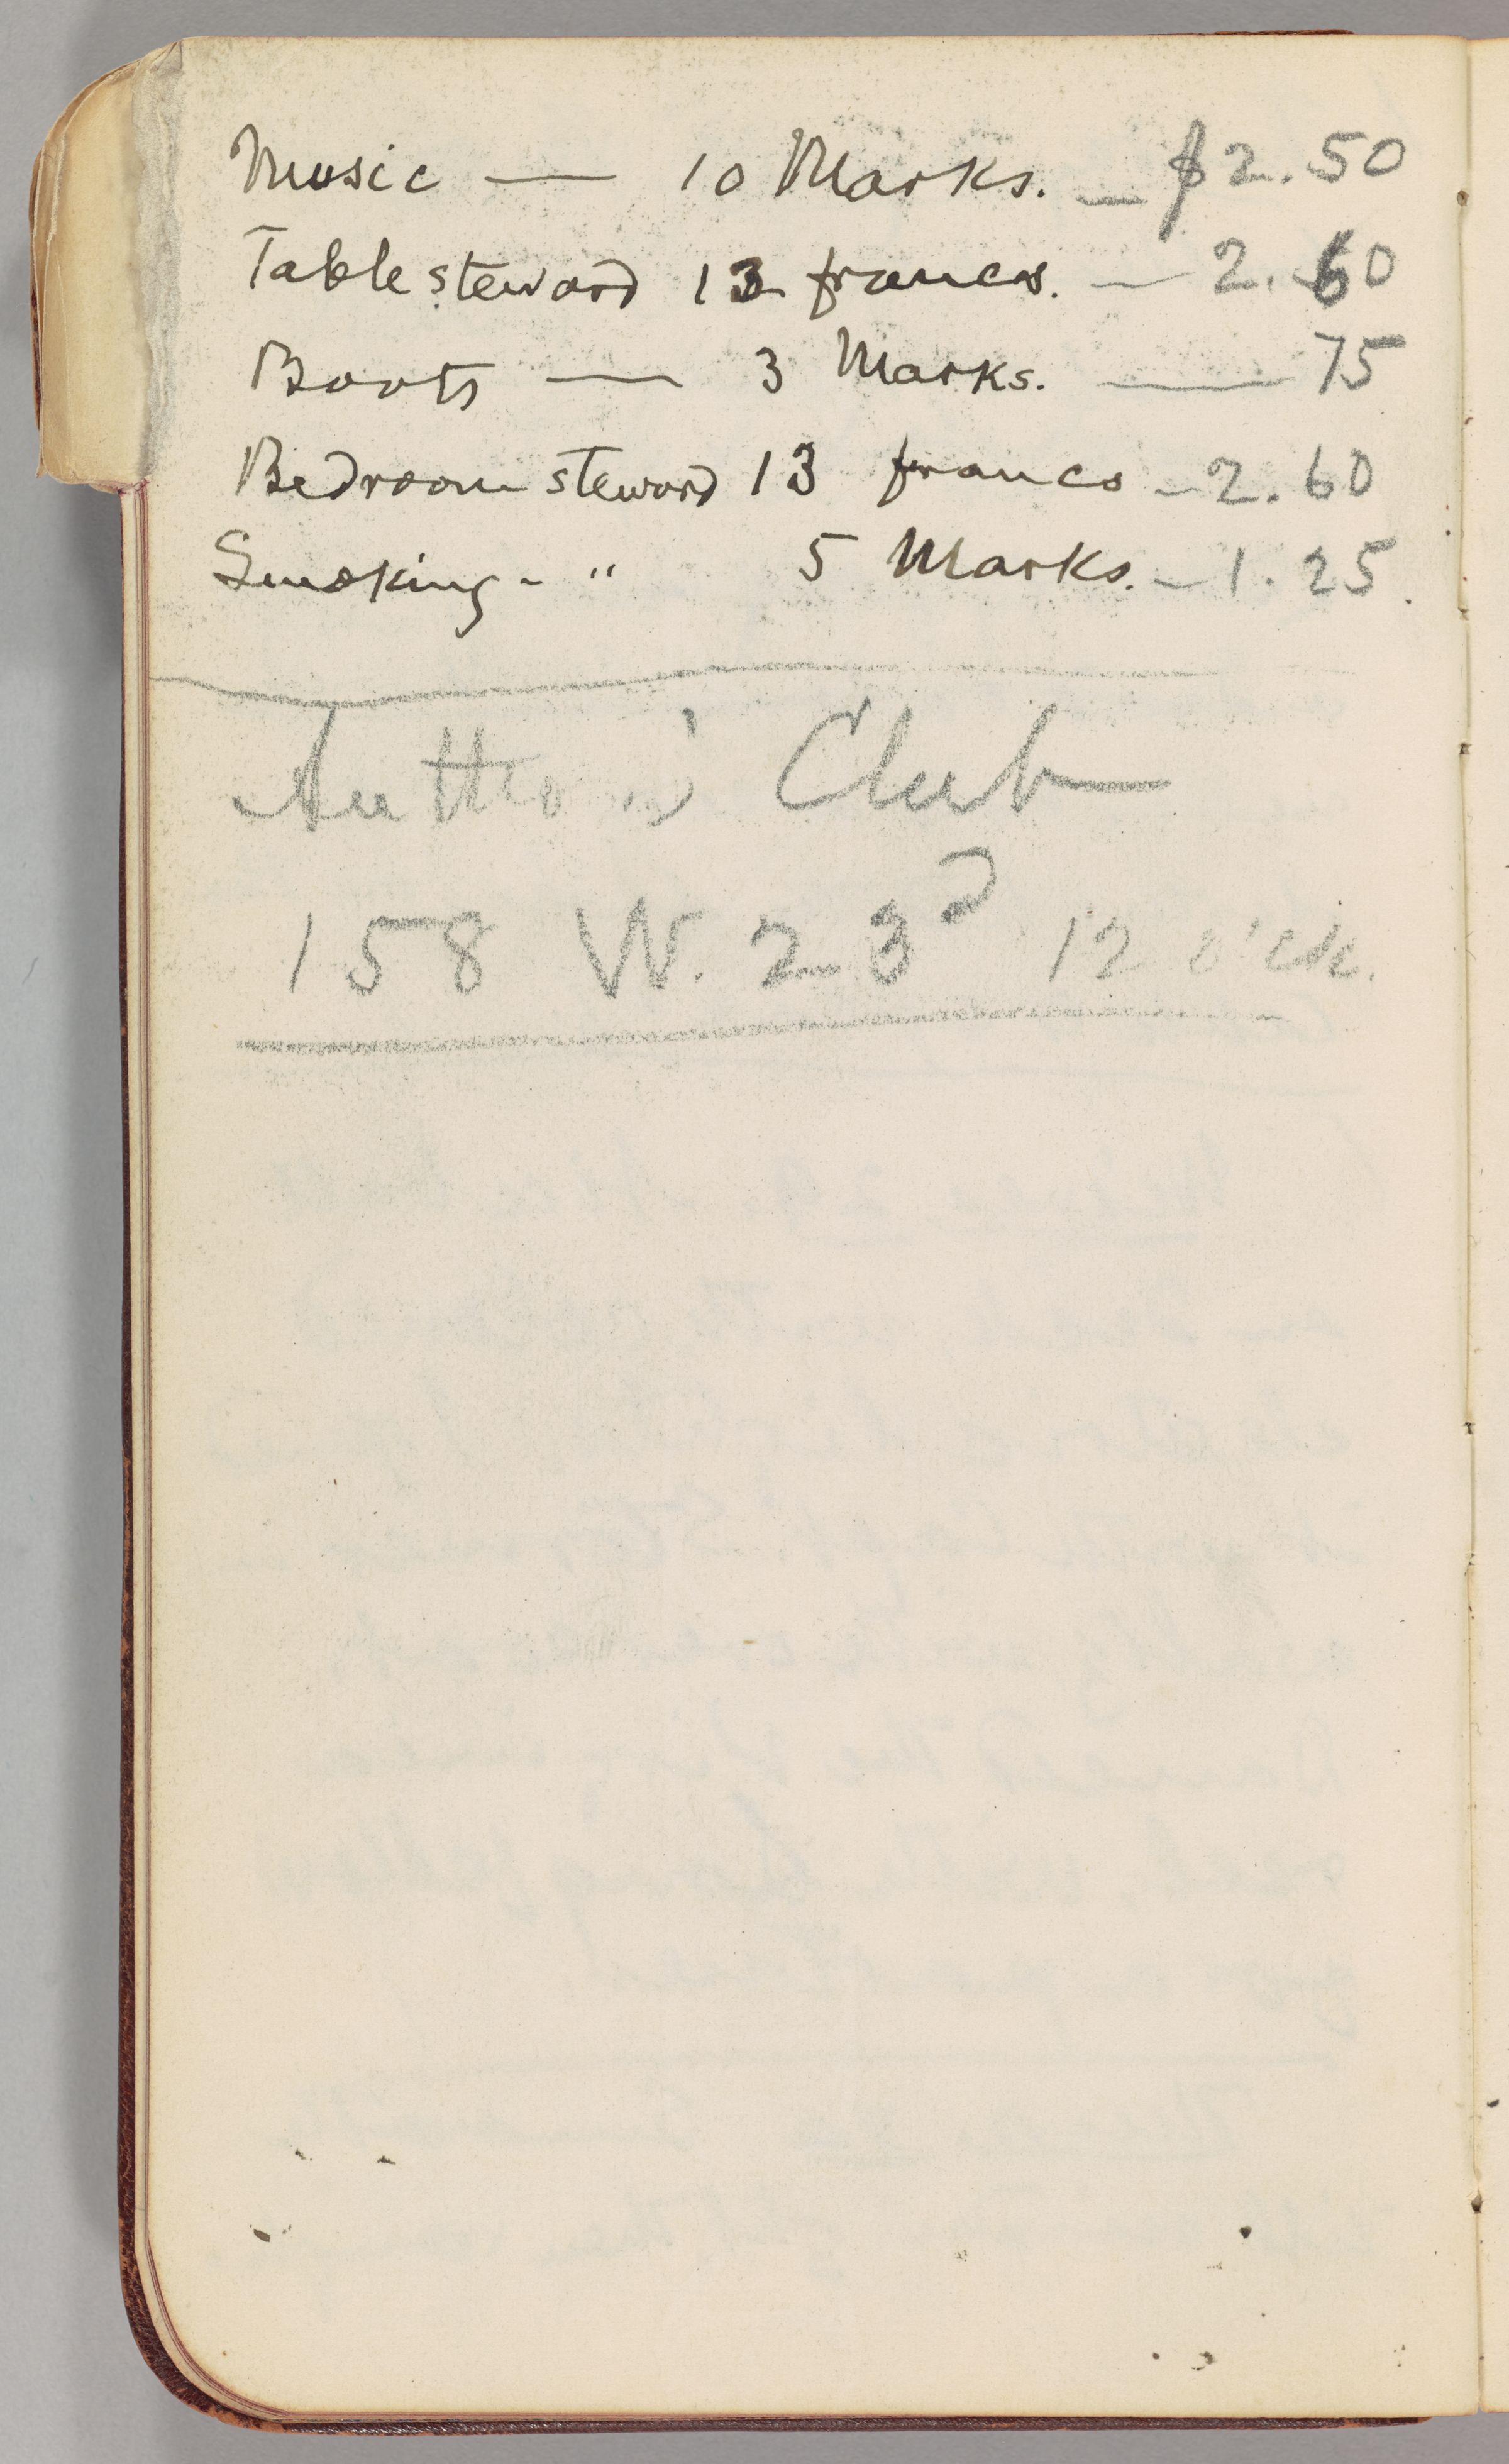 Music — 10 Marks. — $2.50
Table steward 13 francs. — 2.60
Boots — 3 Marks. — 75
Bedroom steward 13 francs — 2.60
Smoking - " 5 Marks. — 1.25.
Author's Club
158 W. 23d 12 o'ck.